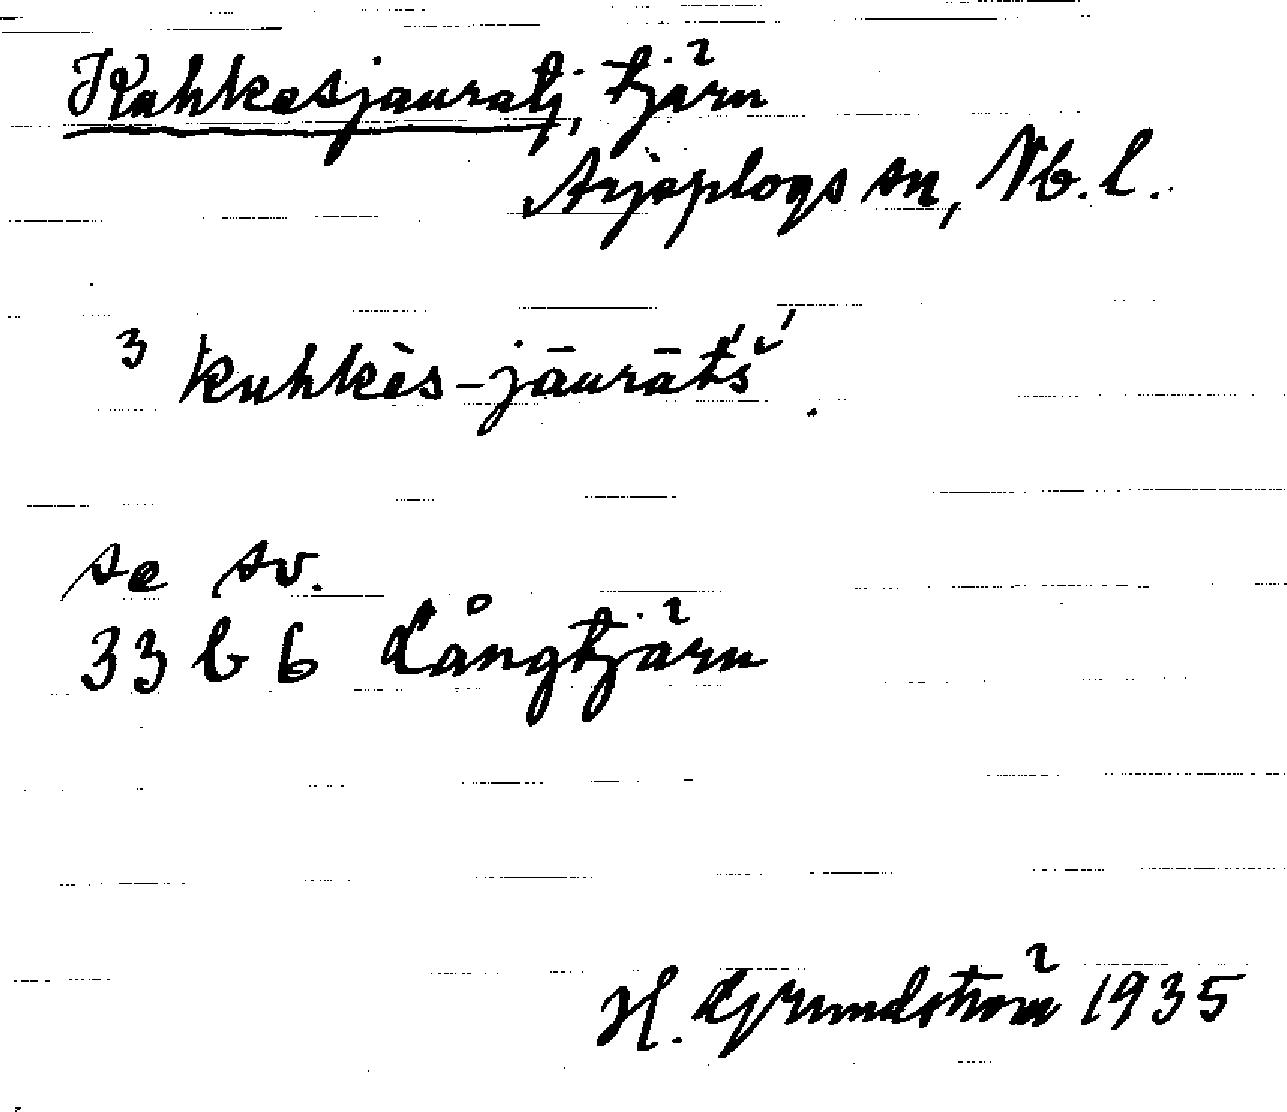 Kuhkesjauratj, tjärn
Arjeplogs sn, Nb. l.
3 kuhkès-jāurāt́š́
se sv.
33 b 6 Långtjärn
H. Grundström 1935